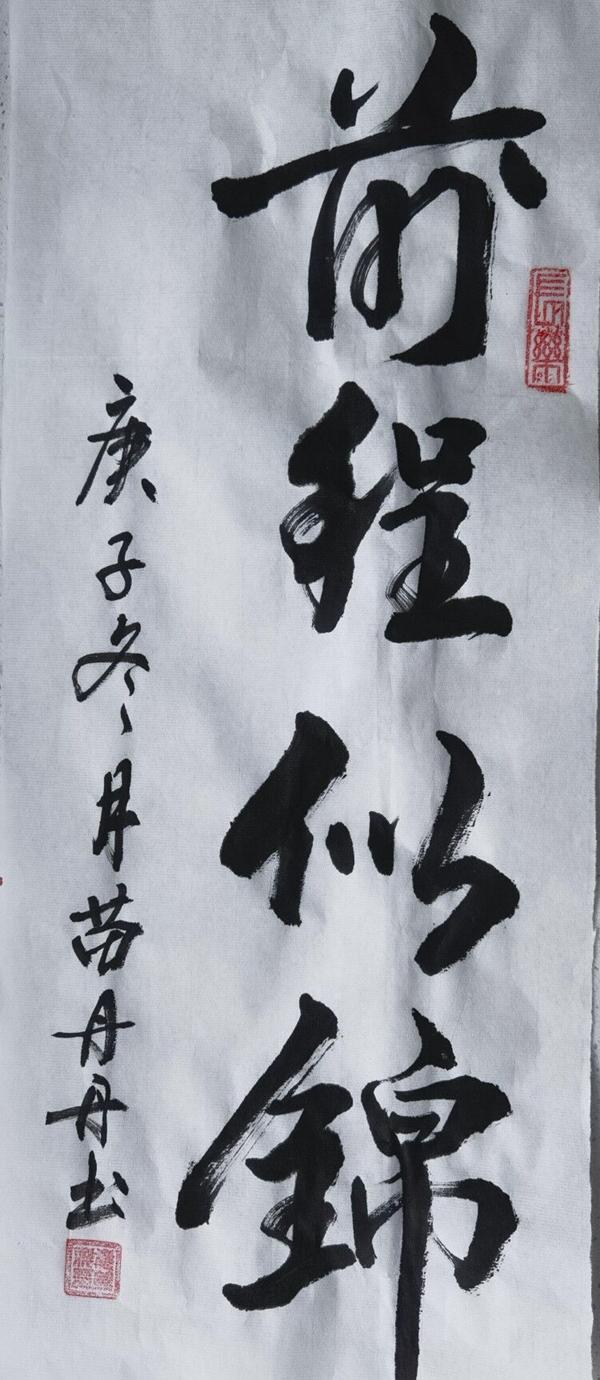 前程似錦
庚子冬月苗丹丹书